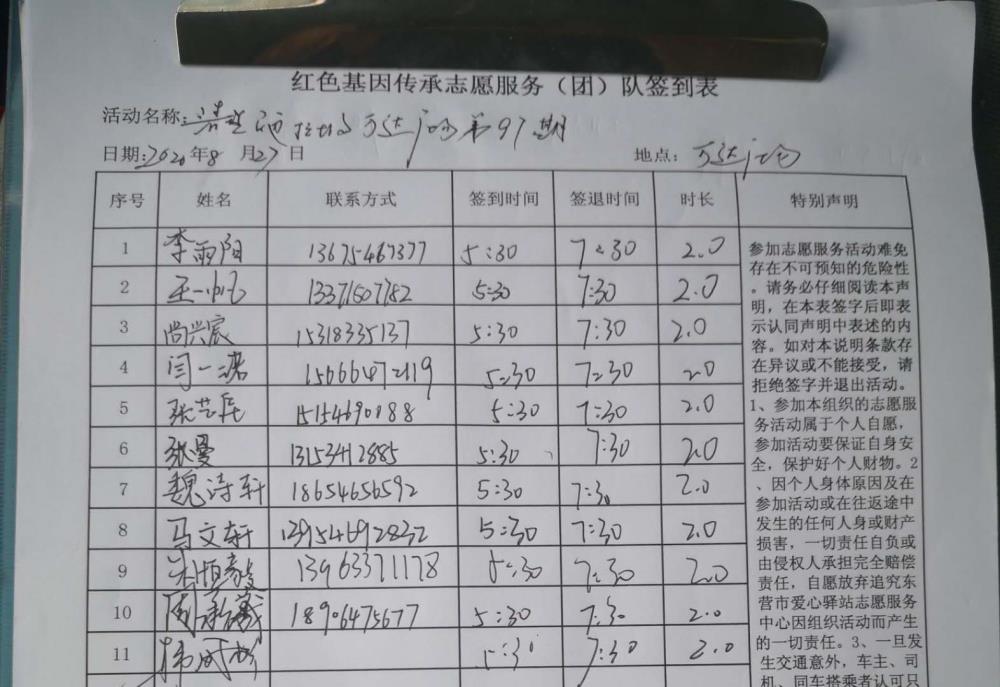 红色基因传承志愿服务（团）队签到表
活动名称: 万达广场第97期
日期:2020年8月27日 地点: 万达广场
序号 姓名 联系方式 签到时间 签退时间 时长 特别声明
1 李雨阳 13675467377 5:30 7:30 2.0
2 王一帆 13371507782 5:30 7:30 2.0
3 尚兴宸 15318335137 5:30 7:30 2.0
4 闫一诺 15666472119 5:30 7:30 2.0
5 张艺 15154690188 5:30 7:30 2.0
6 张曼 13153412885 5:30 7:30 2.0
7 魏诗轩 18654656592 5:30 7:30 2.0
8 马文轩 13954692832 5:30 7:30 2.0
9 13963371178 5:30 7:30 2.0
10 18906475677 5:30 7:30 2.0
11 5:30 7:30 2.0
参加志愿服务活动难免
存在不可预知的危险性
。请务必仔细阅读本声
明，在本表签字后即表
示认同声明中表述的内
容。如对本说明条款存
在异议或不能接受，请
拒绝签字并退出活动。
1、参加本组织的志愿服
务活动属于个人自愿，
参加活动要保证自身安
全，保护好个人财物。2
、因个人身体原因及在
参加活动或在往返途中
发生的任何人身或财产
损害，一切责任自负或
由侵权人承担完全赔偿
责任，自愿放弃追究东
营市爱心驿站志愿服务
中心因组织活动而产生
的一切责任。3、一旦发
生交通意外，车主、司
机、同车搭乘者认可只